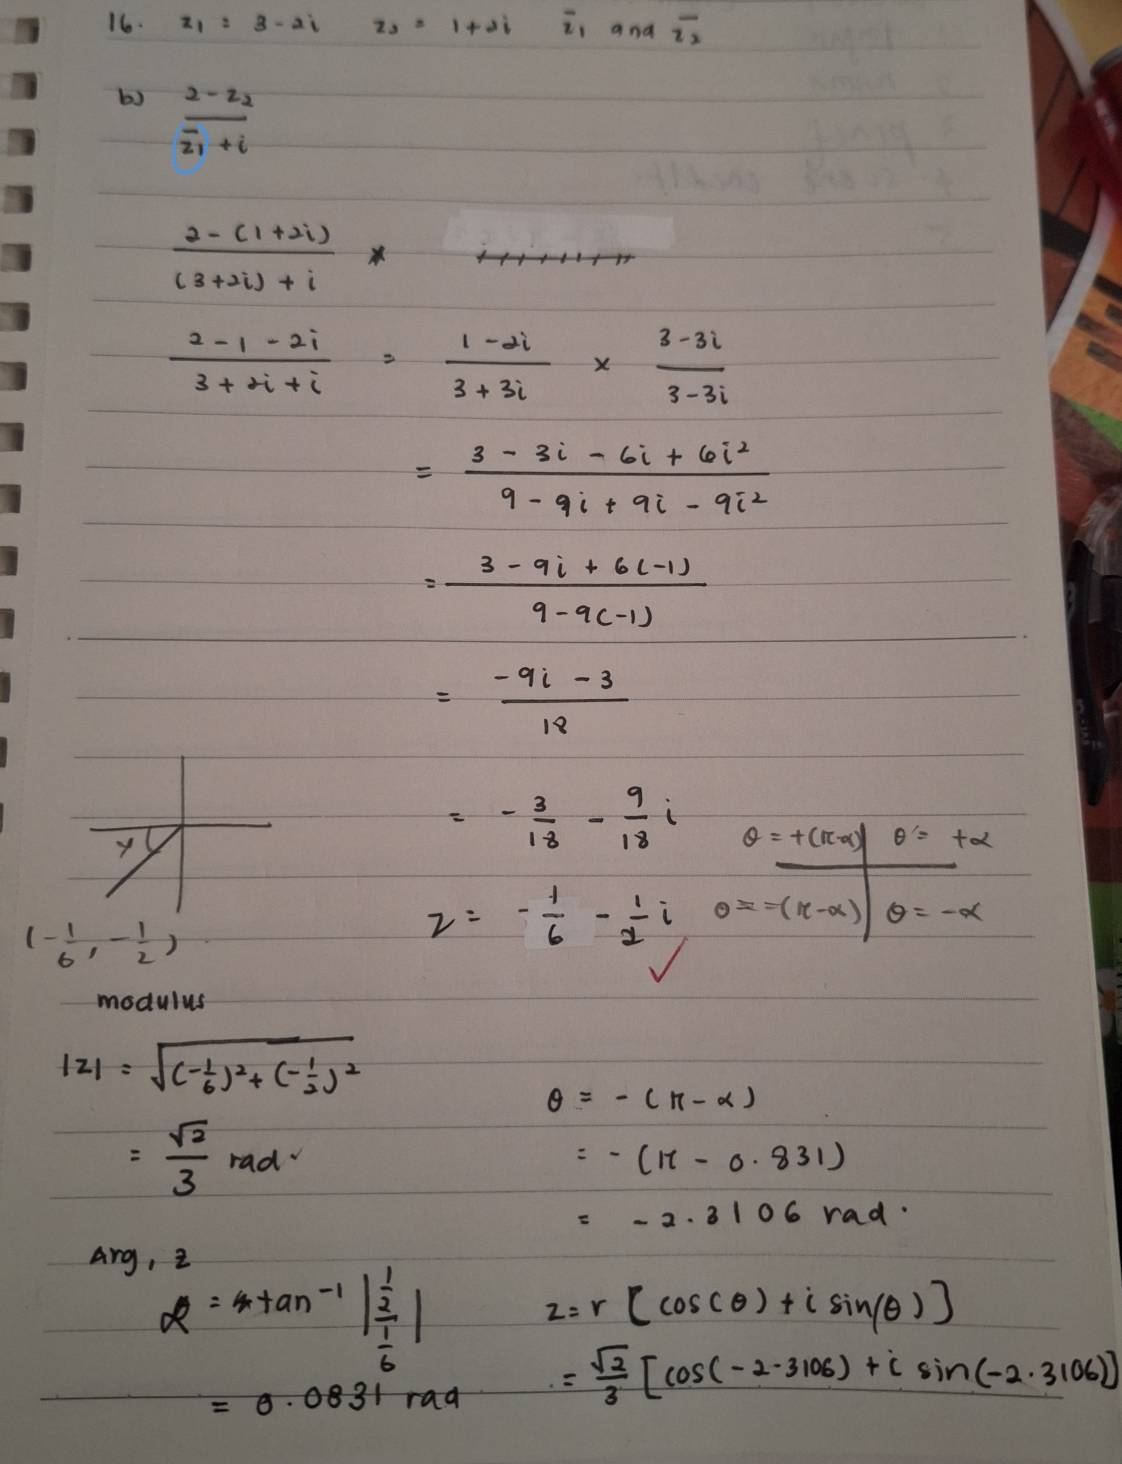 16. z₁ = 3 - 2i z₂ = 1 + 2i z̄₁ and z̄₂
b) (2 - z₂) / (z̄₁ + i)
(2 - (1 + 2i)) / ((3 + 2i) + i) ×
(2 - 1 - 2i) / (3 + 2i + i) = (1 - 2i) / (3 + 3i) × (3 - 3i) / (3 - 3i)
= (3 - 3i - 6i + 6i²) / (9 - 9i + 9i - 9i²)
= (3 - 9i + 6(-1)) / (9 - 9(-1))
= (-9i - 3) / 18
= -3/18 - 9/18 i
θ = +(π-α) θ = +α
z = -1/6 - 1/2 i
θ = -(π-α) θ = -α
(-1/6, -1/2)
modulus
|z| = √((-1/6)² + (-1/2)²)
= √2/3 rad
Arg, z
α = tan⁻¹ |(1/2)/(1/6)|
= 0.0831 rad
θ = -(π - α)
= -(π - 0.831)
= -2.3106 rad.
z = r [cos(θ) + i sin(θ)]
= √2/3 [cos(-2.3106) + i sin(-2.3106)]